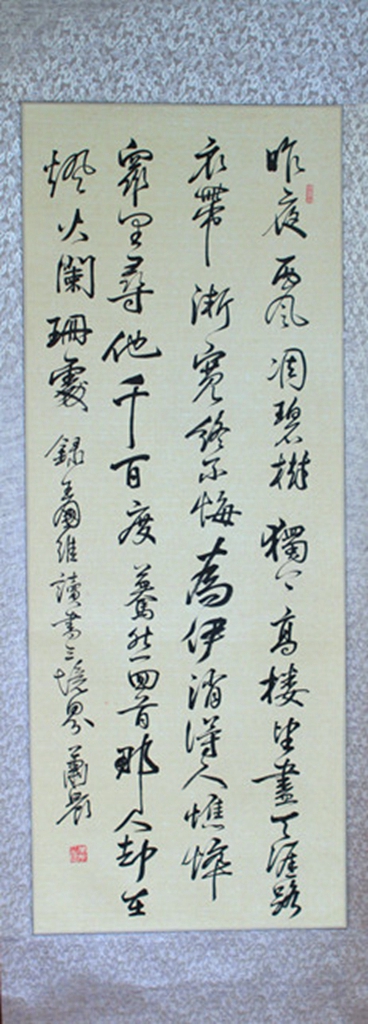 昨夜西風凋碧樹獨上高楼望盡天涯路
衣帶漸寬終不悔為伊消得人憔悴
衆里尋他千百度驀然回首那人却在
燈火闌珊處 錄王國維讀書三境界 蕭